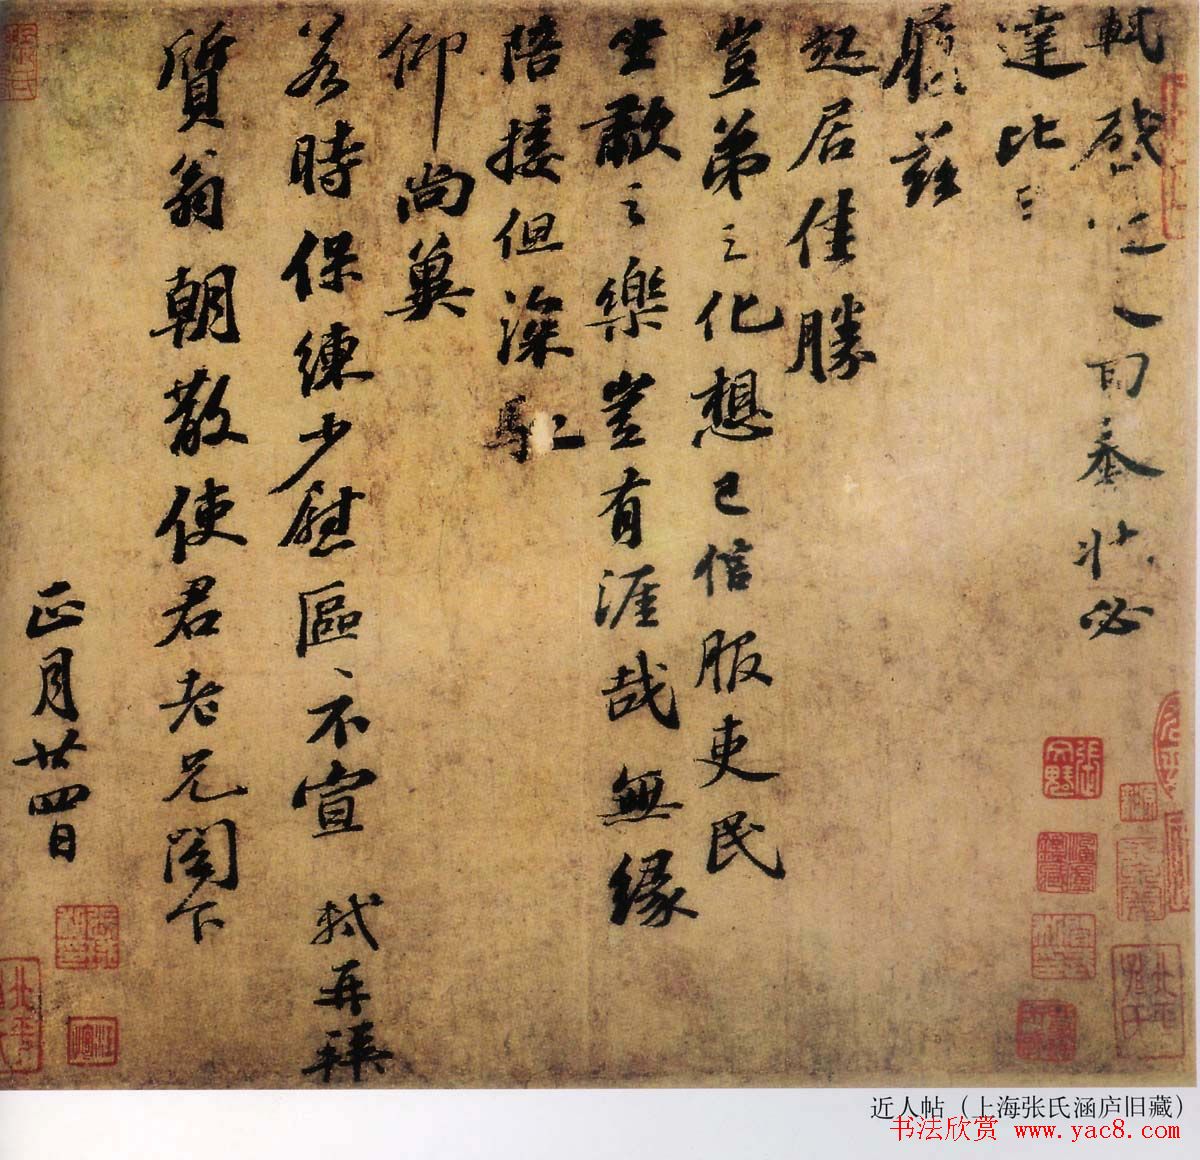 軾啓近人回奉狀必
達比日
履茲
起居佳勝
豈弟之化想已信服吏民
坐嘯之樂豈有涯哉無緣
陪接但深馳
仰尚冀
若時保練少慰區、不宣 軾再拜
質翁朝散使君老兄閣下
正月廿四日
近人帖（上海张氏涵庐旧藏）
书法欣赏 www.yac8.com